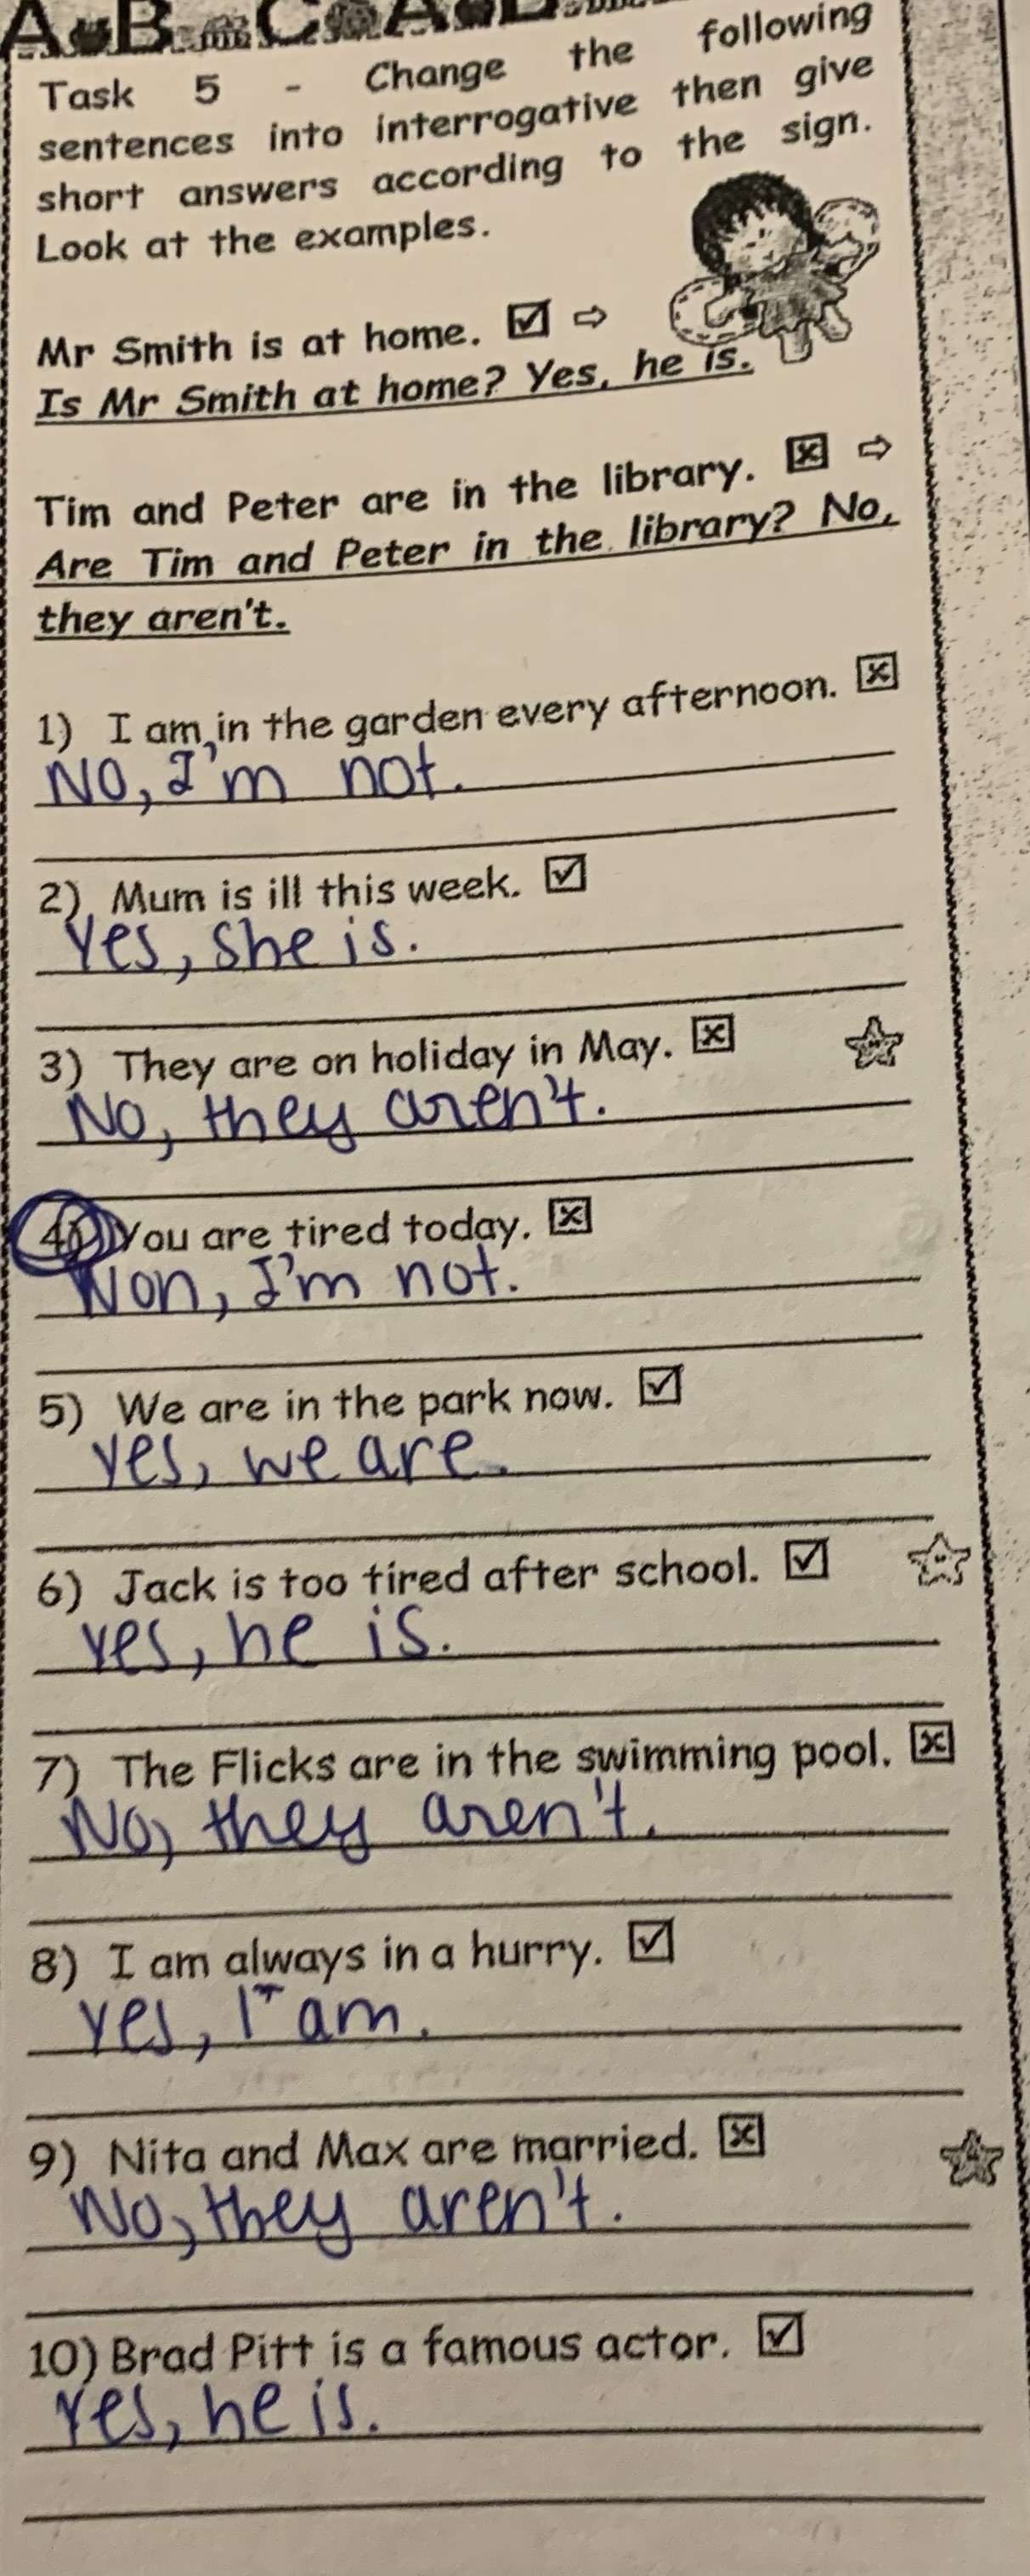 Task 5 - Change the following
sentences into interrogative then give
short answers according to the sign.
Look at the examples.
Mr Smith is at home. ☑ ⇨
Is Mr Smith at home? Yes, he is.
Tim and Peter are in the library. ☒ ⇨
Are Tim and Peter in the library? No,
they aren't.
1) I am in the garden every afternoon. ☒
No, I'm not.
2) Mum is ill this week. ☑
Yes, she is.
3) They are on holiday in May. ☒
No, they aren't.
4) You are tired today. ☒
Non, I'm not.
5) We are in the park now. ☑
yes, we are.
6) Jack is too tired after school. ☑
yes, he is.
7) The Flicks are in the swimming pool. ☒
No, they aren't.
8) I am always in a hurry. ☑
yes, I am.
9) Nita and Max are married. ☒
No, they aren't.
10) Brad Pitt is a famous actor. ☑
Yes, he is.